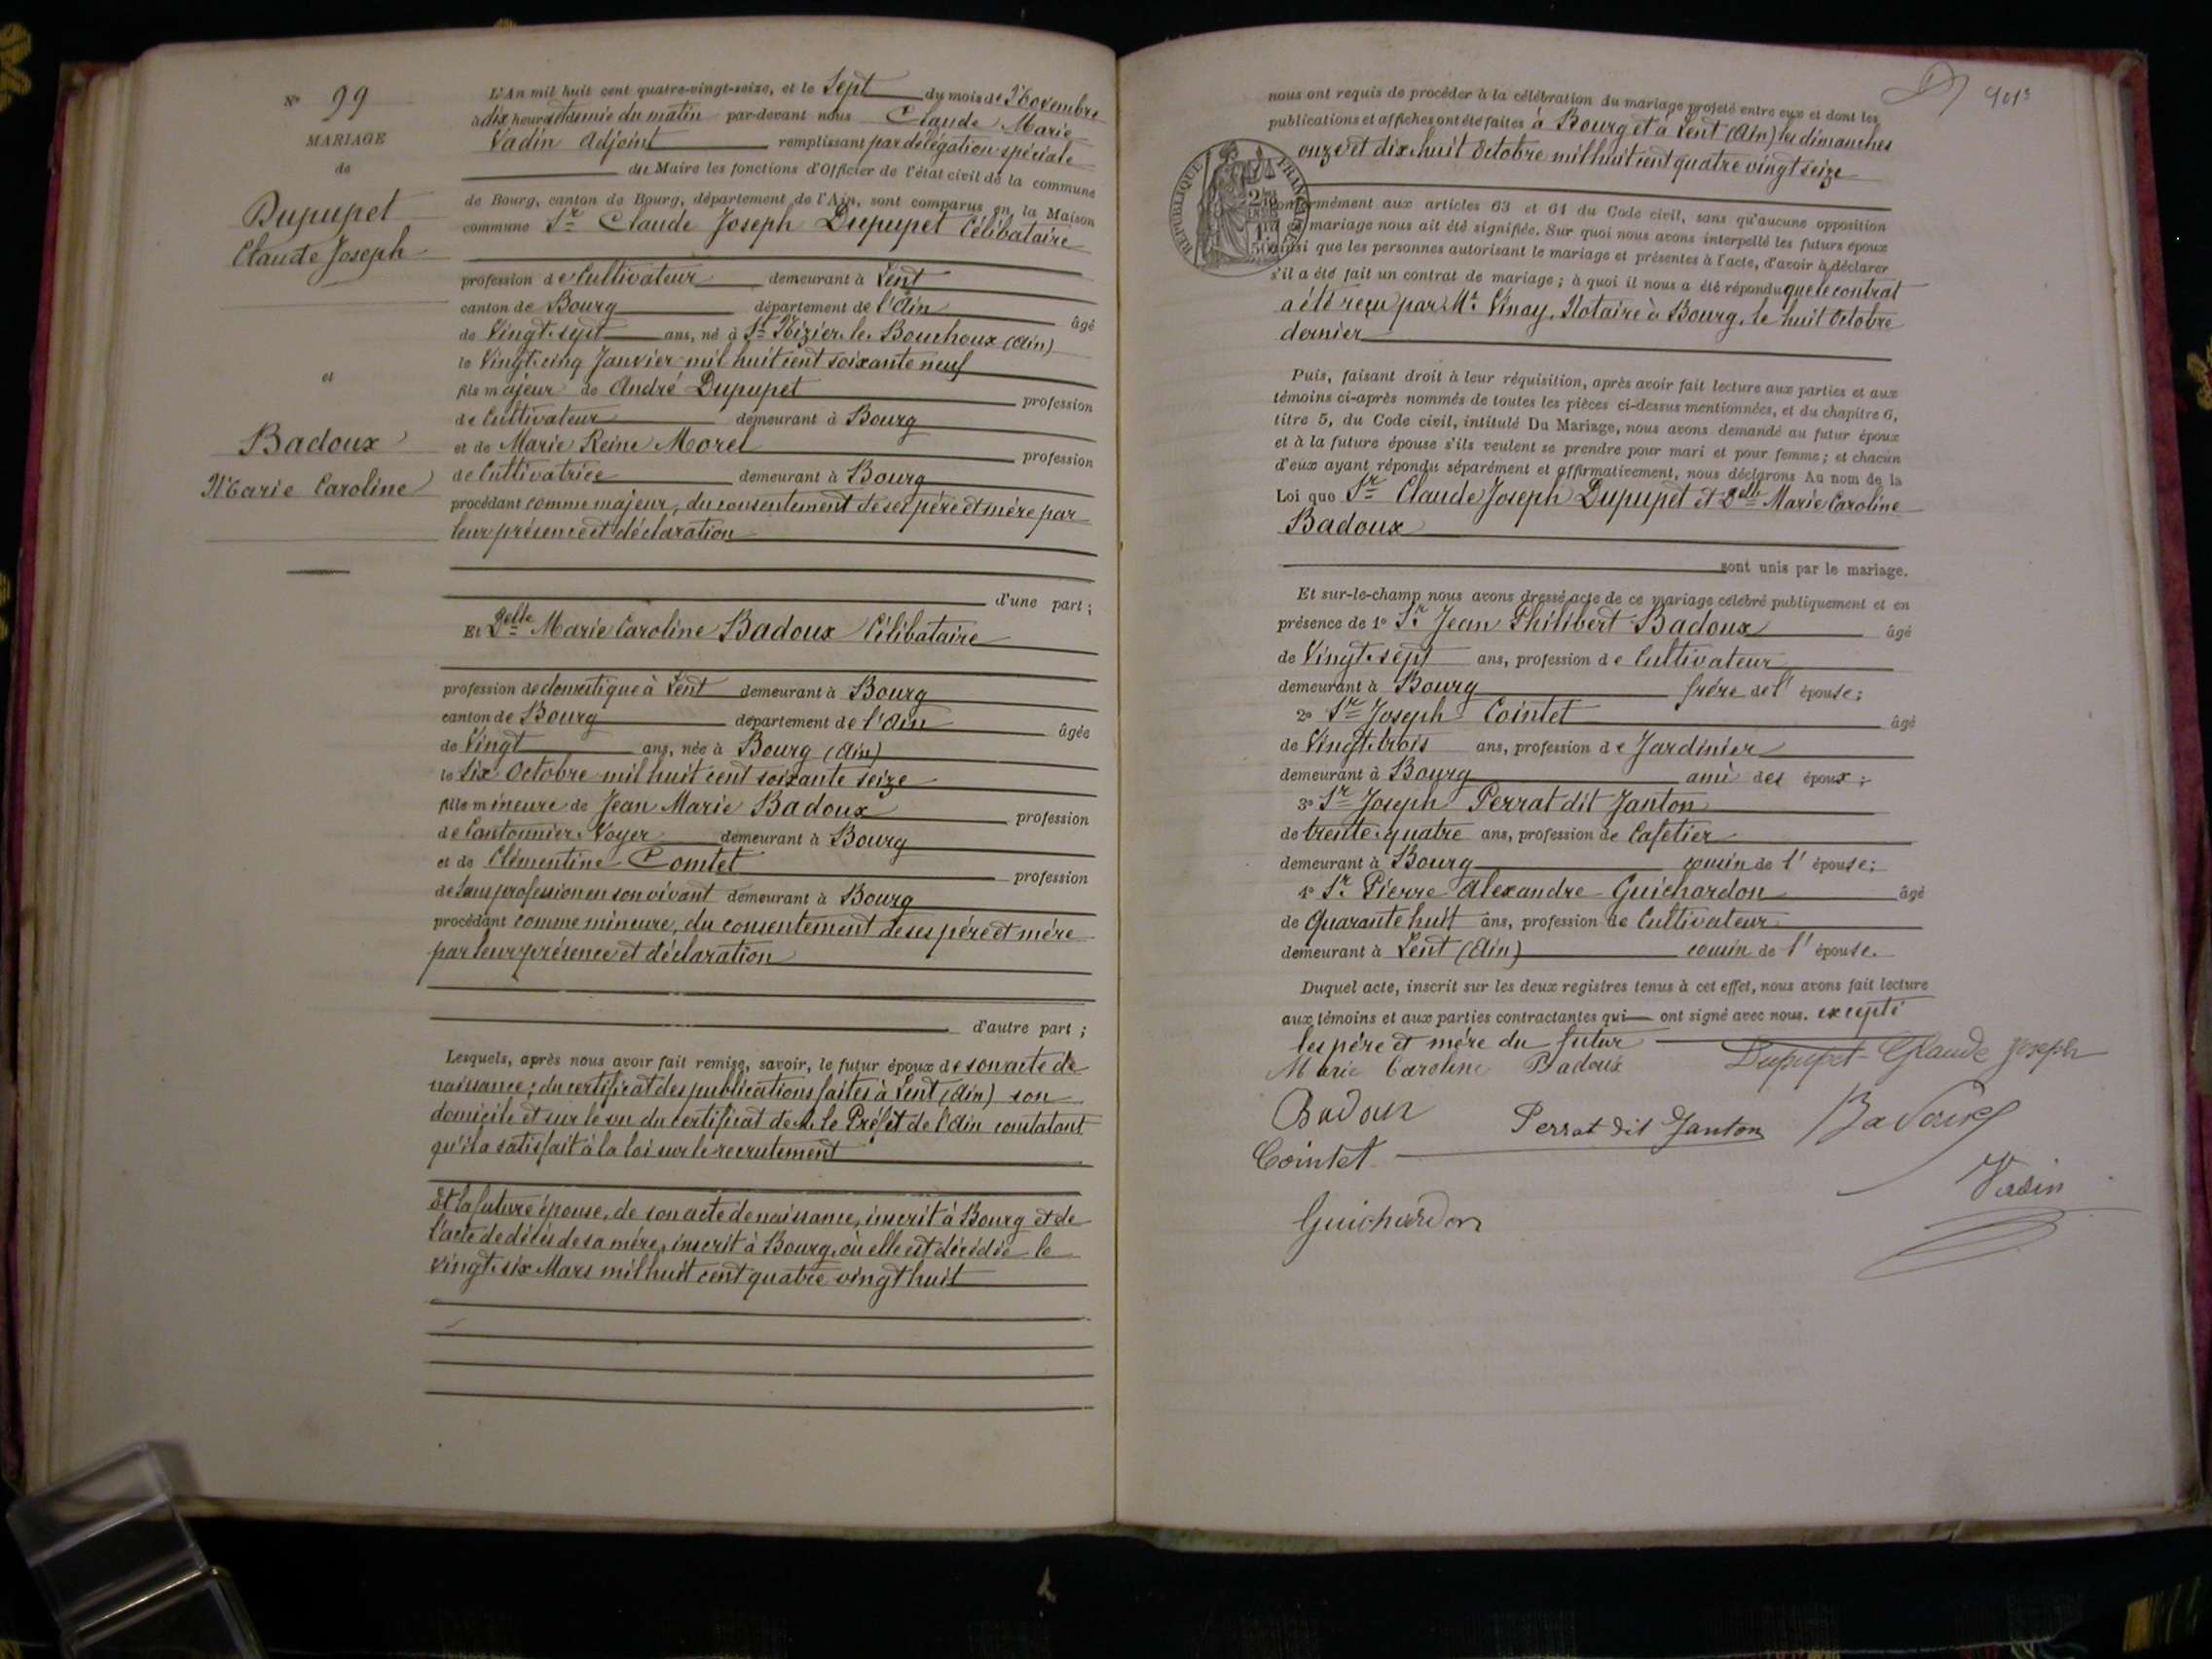 N° 99
MARIAGE
de
Dupupet
Claude Joseph
et
Badoux
Marie Caroline
L'An mil huit cent quatre-vingt-seize, et le Sept du mois de Novembre
à dix heures et demie du matin par-devant nous Claude Marie
Vadin Adjoint remplissant par délégation spéciale
du Maire les fonctions d'Officier de l'état civil de la commune
de Bourg, canton de Bourg, département de l'Ain, sont comparus en la Maison
commune Sr Claude Joseph Dupupet Célibataire
profession de Cultivateur demeurant à Lent
canton de Bourg département de l'Ain âgé
de Vingt-sept ans, né à St Nizier le Bouchoux (Ain)
le Vingt-cinq Janvier mil huit cent soixante neuf
fils majeur de André Dupupet profession
de Cultivateur demeurant à Bourg
et de Marie Reine Morel profession
de Cultivatrice demeurant à Bourg
procédant comme majeur, du consentement de ses père et mère par
leur présence et déclaration
d'une part ;
Et Delle Marie Caroline Badoux Célibataire
profession de domestique à Lent demeurant à Bourg
canton de Bourg département de l'Ain âgée
de Vingt ans, née à Bourg (Ain)
le six Octobre mil huit cent soixante seize
fille mineure de Jean Marie Badoux profession
de Cantonnier Voyer demeurant à Bourg
et de Clémentine Comtet profession
de Sans profession en son vivant demeurant à Bourg
procédant comme mineure, du consentement de ses père et mère
par leur présence et déclaration
d'autre part ;
Lesquels, après nous avoir fait remise, savoir, le futur époux de son acte de
naissance ; du certificat des publications faites à Lent (Ain) son
domicile et sur le vu du certificat de M. le Préfet de l'Ain constatant
qu'il a satisfait à la loi sur le recrutement
Et la future épouse, de son acte de naissance, inscrit à Bourg et de
l'acte de décès de sa mère, inscrit à Bourg, où elle est décédée le
vingt-six Mars mil huit cent quatre vingt huit
nous ont requis de procéder à la célébration du mariage projeté entre eux et dont les
publications et affiches ont été faites à Bourg et à Lent (Ain) les dimanches
onze et dix-huit Octobre mil huit cent quatre vingt seize
RÉPUBLIQUE FRANÇAISE
Conformément aux articles 63 et 64 du Code civil, sans qu'aucune opposition
mariage nous ait été signifiée. Sur quoi nous avons interpellé les futurs époux
ainsi que les personnes autorisant le mariage et présentes à l'acte, d'avoir à déclarer
s'il a été fait un contrat de mariage ; à quoi il nous a été répondu que le contrat
a été reçu par Me Vinay, Notaire à Bourg, le huit Octobre
dernier
Puis, faisant droit à leur réquisition, après avoir fait lecture aux parties et aux
témoins ci-après nommés de toutes les pièces ci-dessus mentionnées, et du chapitre 6,
titre 5, du Code civil, intitulé Du Mariage, nous avons demandé au futur époux
et à la future épouse s'ils veulent se prendre pour mari et pour femme ; et chacun
d'eux ayant répondu séparément et affirmativement, nous déclarons Au nom de la
Loi que Sr Claude Joseph Dupupet et Delle Marie Caroline
Badoux
sont unis par le mariage.
Et sur-le-champ nous avons dressé acte de ce mariage célébré publiquement et en
présence de 1° Sr Jean Philibert Badoux âgé
de Vingt-sept ans, profession de Cultivateur
demeurant à Bourg frère de l'épouse ;
2° Sr Joseph Cointet âgé
de Vingt-trois ans, profession de Jardinier
demeurant à Bourg ami des époux ;
3° Sr Joseph Perrat dit Janton
de trente-quatre ans, profession de Cafetier
demeurant à Bourg cousin de l'épouse ;
4° Sr Pierre Alexandre Guichardon âgé
de Quarante huit ans, profession de Cultivateur
demeurant à Lent (Ain) cousin de l'épouse.
Duquel acte, inscrit sur les deux registres tenus à cet effet, nous avons fait lecture
aux témoins et aux parties contractantes qui ont signé avec nous. excepté
les père et mère du futur
Marie Caroline Badoux Dupupet Claude Joseph
Badoux Perrat dit Janton Badoux
Cointet
Vadin
Guichardon